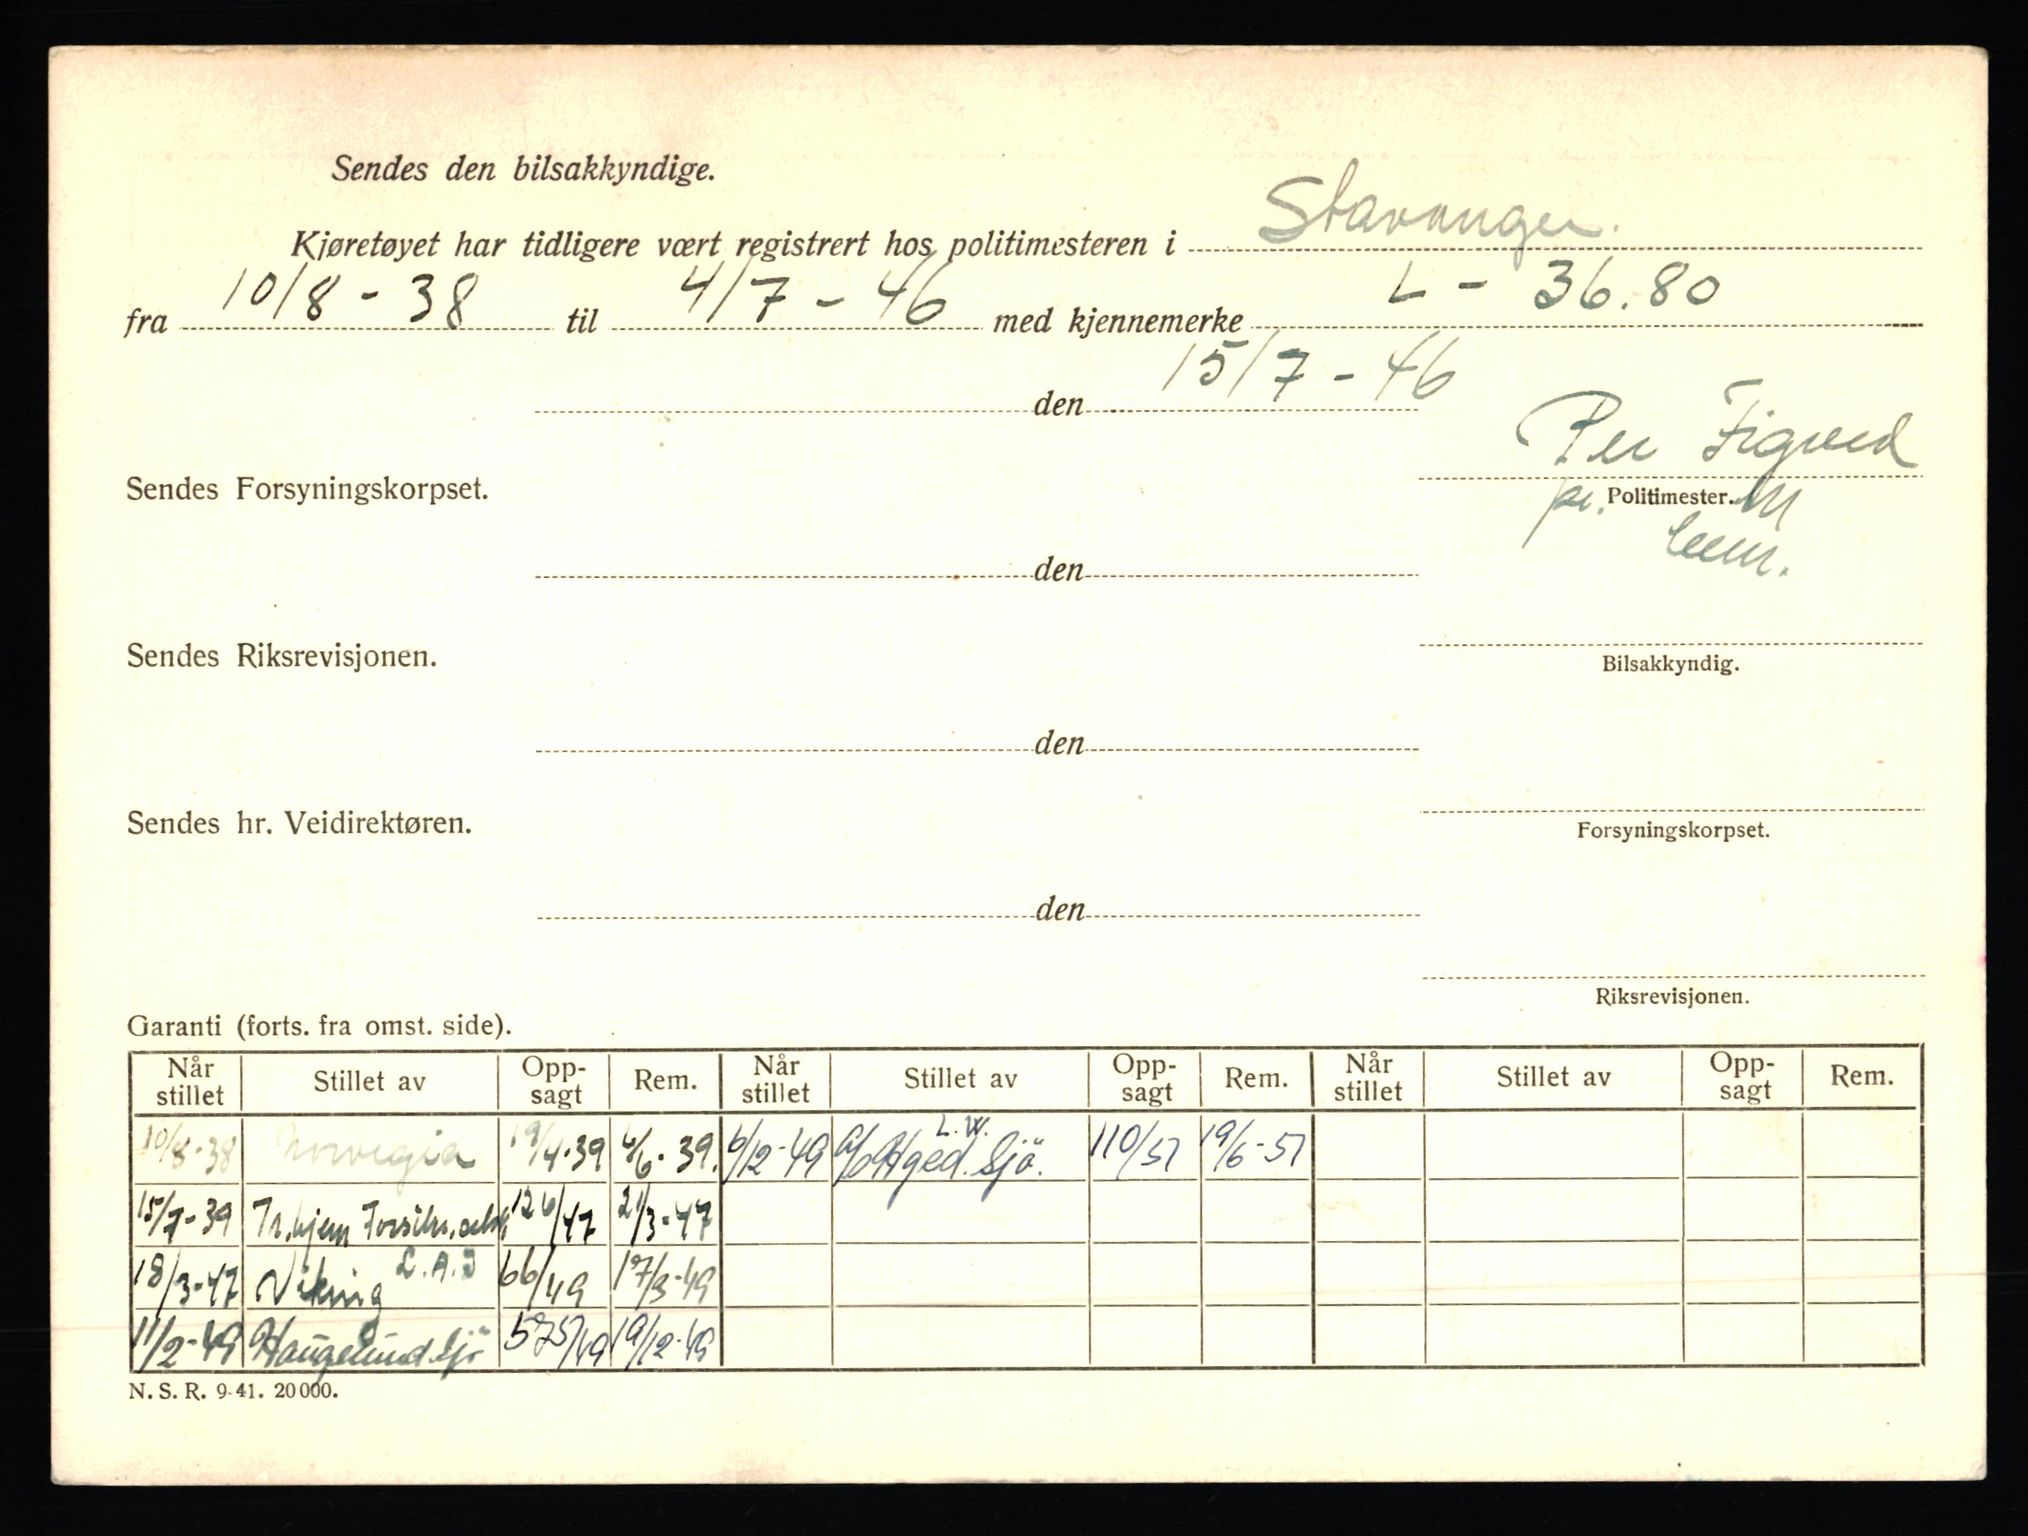 Sendes den bilsakkyndige.
Kjøretøyet har tidligere vært registrert hos politimesteren i Stavanger.
fra 10/8 - 38 til 4/7 - 46 med kjennemerke L - 36.80
den 15/7 - 46
Per Figved
Sendes Forsyningskorpset.
Politimester.
den
Sendes Riksrevisjonen.
Bilsakkyndig.
den
Sendes hr. Veidirektøren.
Forsyningskorpset.
den
Riksrevisjonen.
Garanti (forts. fra omst. side).
Når stillet Stillet av Opp-sagt Rem. Når stillet Stillet av Opp-sagt Rem. Når stillet Stillet av Opp-sagt Rem.
10/8-38 Norvegia 19/4-39 6/6-39. 6/12-49 L.W. Sjö. 110/51 19/6-51
15/7-39 Tr.hjem 126/47 21/3-47
18/3-47 Viking 66/49 17/3-49
11/2-49 Haugesund Sjö 575/49 19/12-49
N. S. R. 9-41. 20 000.